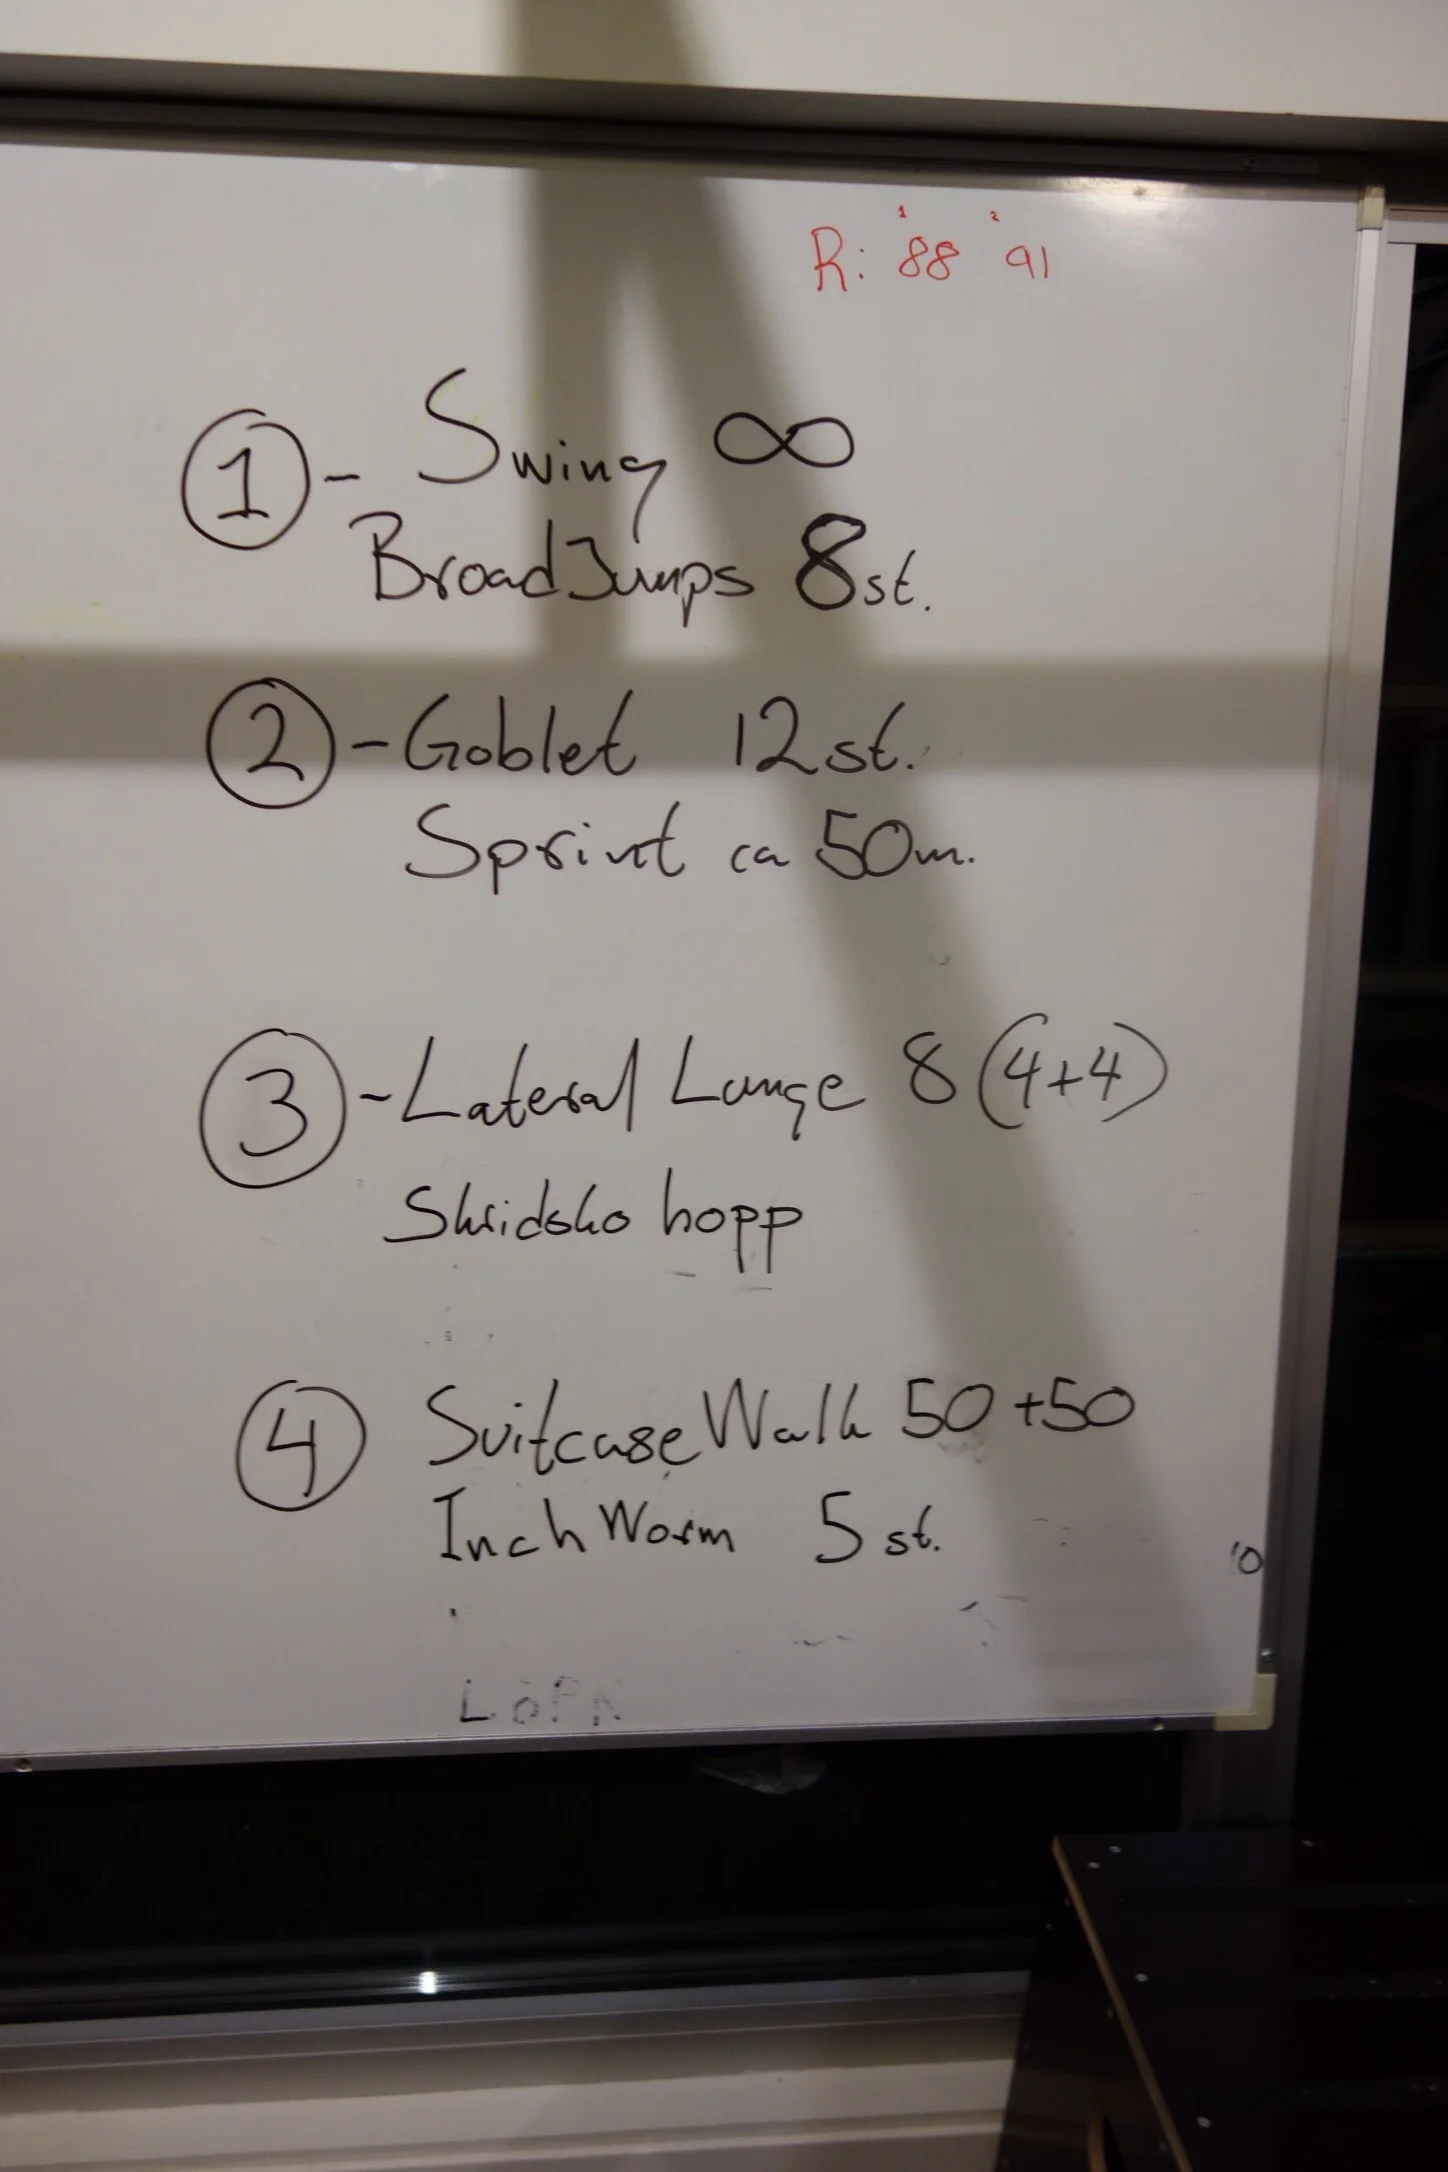 1 2
R: 88 91
1 - Swing ∞
Broad Jumps 8st.
2 - Goblet 12st.
Sprint ca 50m.
3 - Lateral Lunge 8 (4+4)
Skridsko hopp
4 Suitcase Walk 50 +50
Inch Worm 5 st.